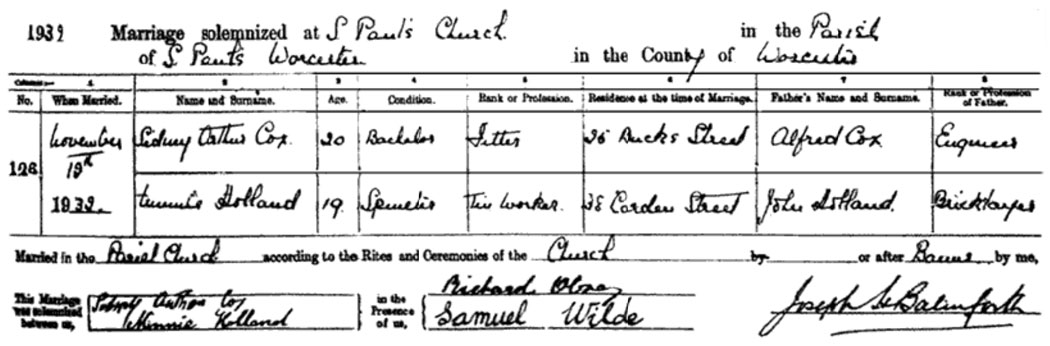 1932 Marriage solemnized at St Paul's Church in the Parish
of St Paul's Worcester in the County of Worcester
Columns:— 1 2 3 4 5 6 7 8
No. When Married. Name and Surname. Age. Condition. Rank or Profession. Residence at the time of Marriage. Father's Name and Surname. Rank or Profession of Father.
126 November 19th 1932. Sidney Arthur Cox. 20 Bachelor Fitter Street Alfred Cox. Engineer
Minnie Holland 19. Spinster Tin Worker. 38 Carden Street John Holland. Bricklayer
Married in the Parish Church according to the Rites and Ceremonies of the Church by or after Banns by me,
This Marriage was solemnized between us, Sidney Arthur Cox Minnie Holland in the Presence of us, Richard Samuel Wilde Joseph